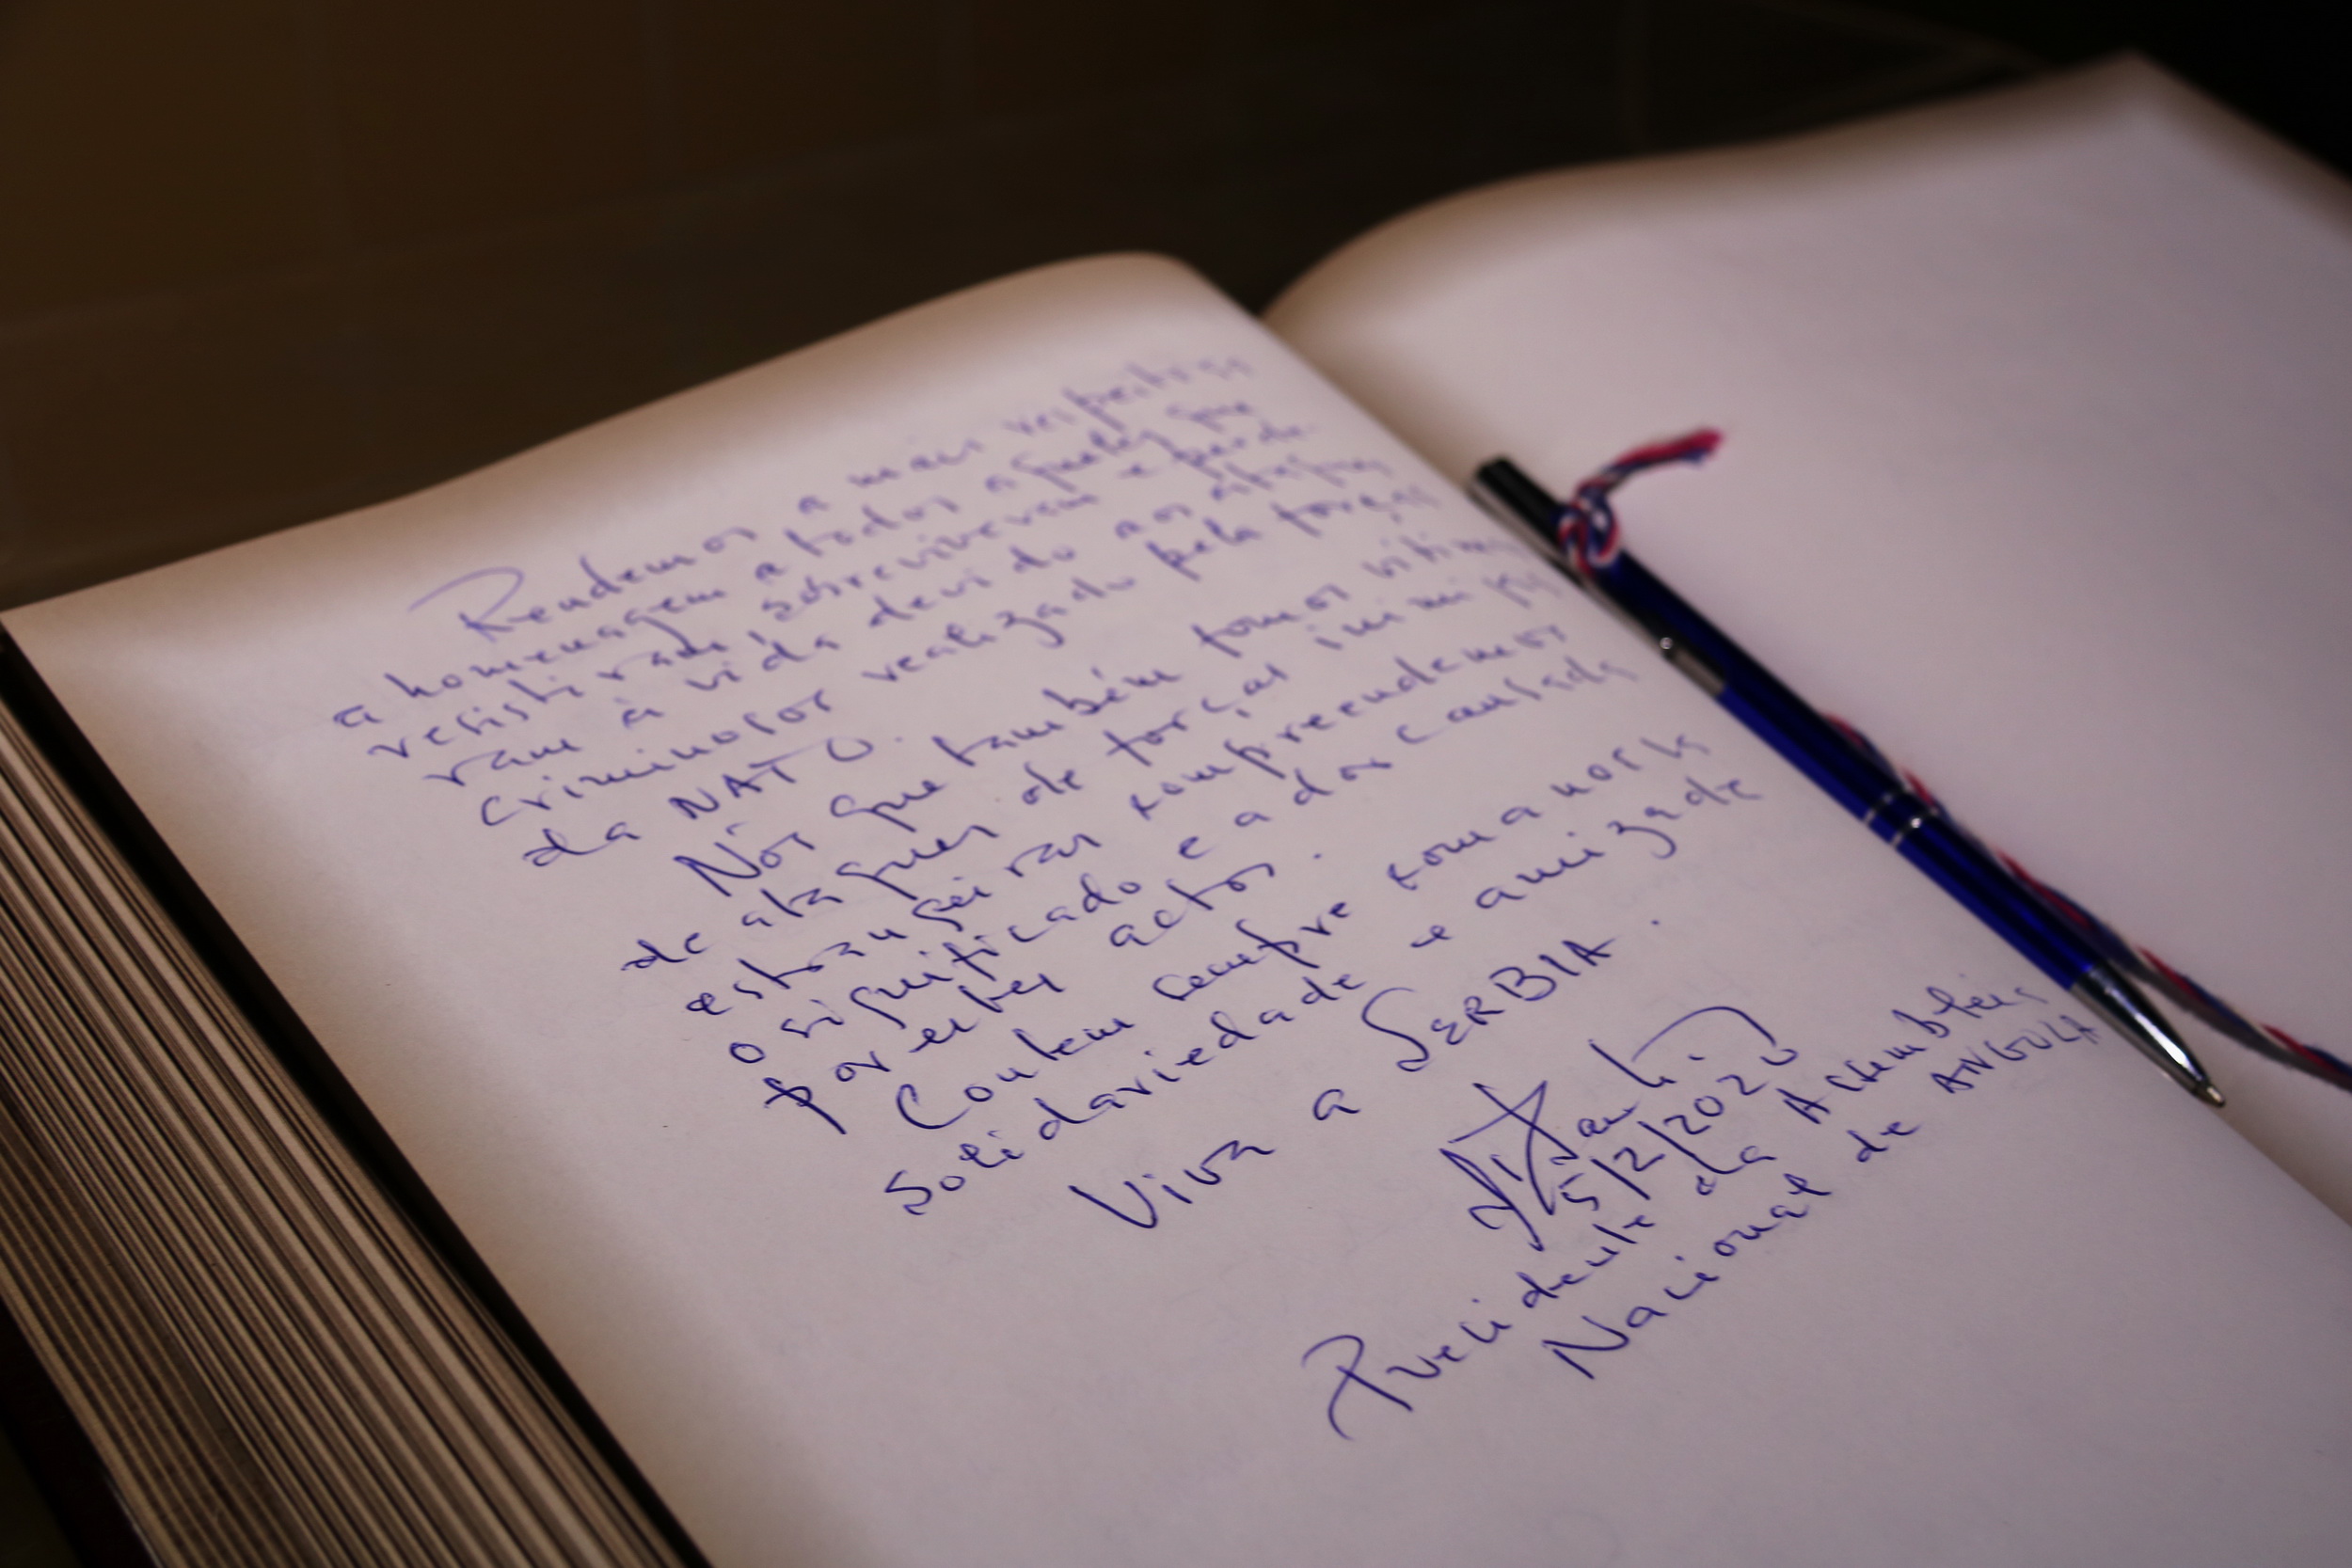 Rendemos a mais respeitosa
a homenagem a todos aqueles que
resistiram, sobreviveram e perde-
ram a vida devido aos ataques
criminosos realizado pela forças
da NATO.
Nós que também fomos vítimas
de ataques de forças inimigas
estrangeiras compreendemos
o significado e a dor causada
por estes actos.
Contem sempre com a nossa
solidariedade e amizade
Viva a SERBIA.
5/2/2020
Presidente da Assembleia
Nacional de ANGOLA